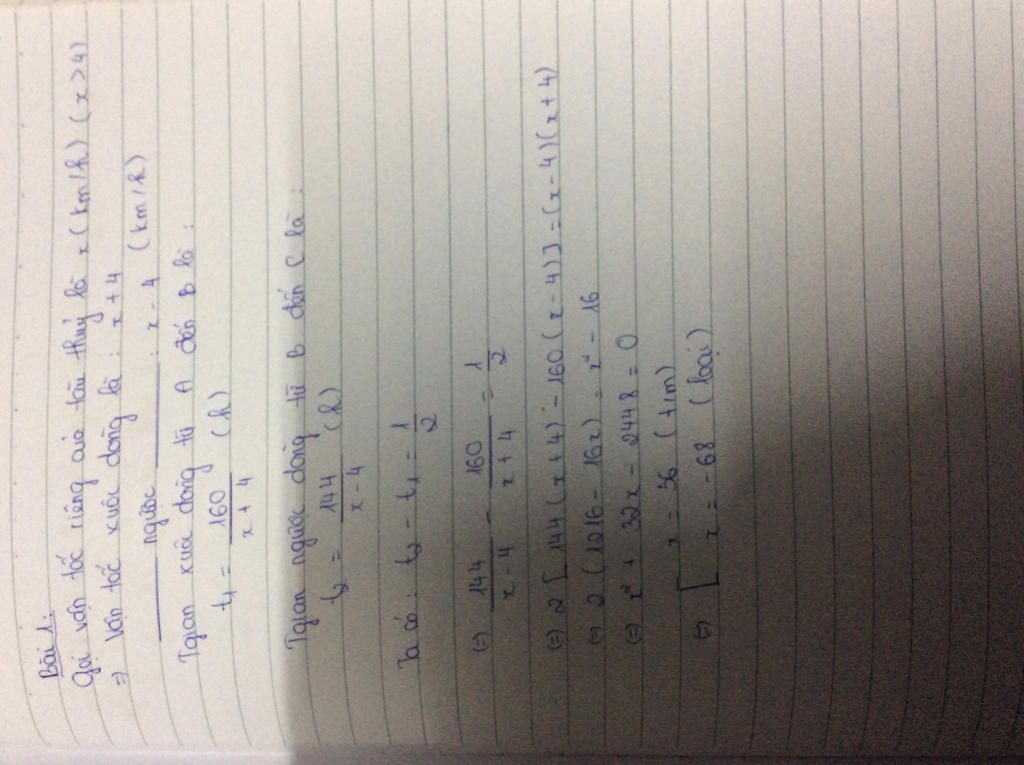 Bài 1:
Gọi vận tốc riêng của tàu thuỷ là x (km/h) (x > 4)
=> Vận tốc xuôi dòng là : x + 4
____ ngược ____ : x - 4 (km/h)
Tgian xuôi dòng từ A đến B là :
t₁ = 160/(x + 4) (h)
Tgian ngược dòng từ B đến C là :
t₂ = 144/(x - 4) (h)
Ta có : t₂ - t₁ = 1/2
(=) 144/(x - 4) - 160/(x + 4) = 1/2
(=) 2 [ 144 (x + 4) - 160 (x - 4) ] = (x - 4) (x + 4)
(=) 2 (1216 - 16x) = x² - 16
(=) x² + 32x - 2448 = 0
(=) [ x = 36 (t/m)
x = -68 (loại)